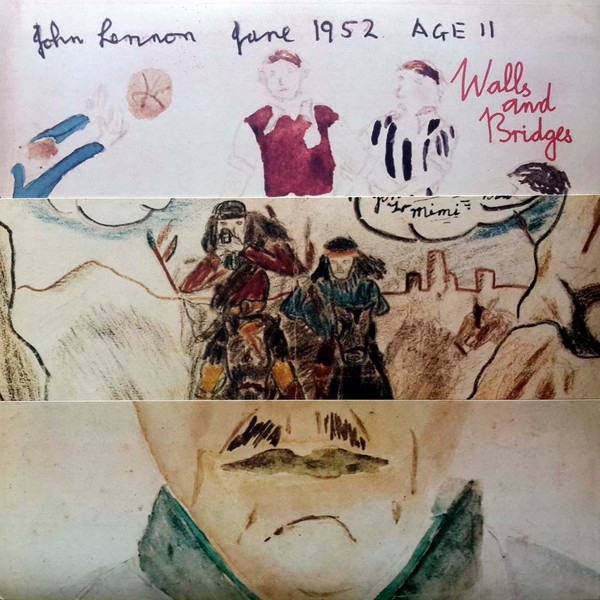 John Lennon June 1952. AGE 11
Walls
and
Bridges
mimi